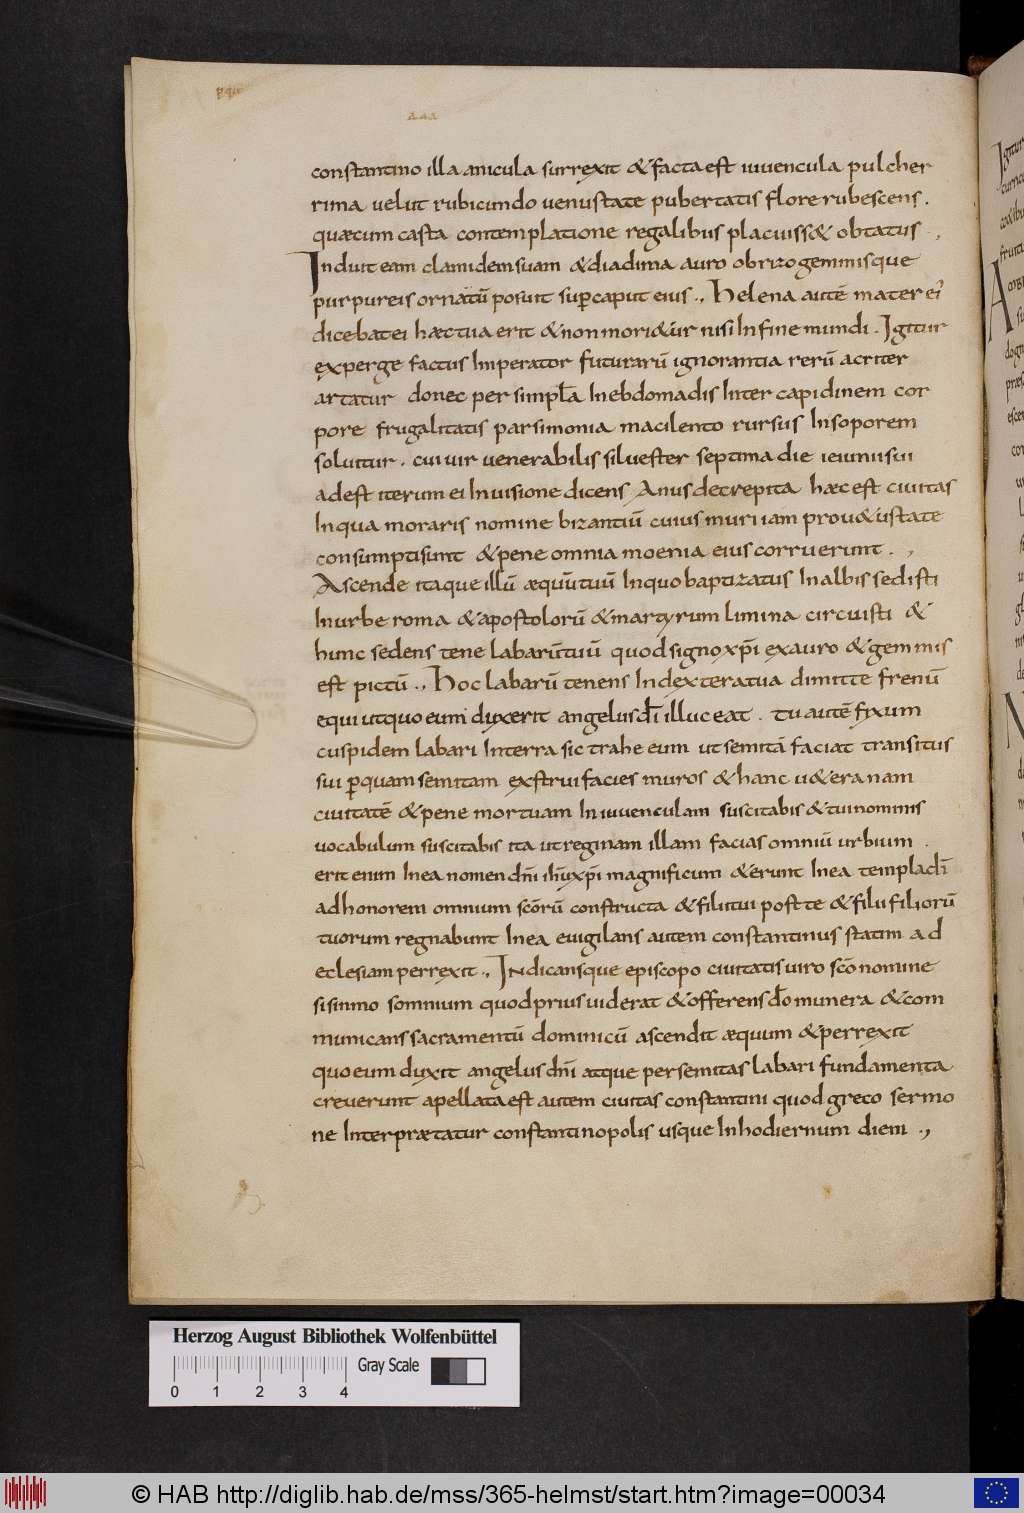 constantino illa anicula surrexit & facta est iuvencula pulcher
rima velut rubicundo venustate pubertatis flore rubescens .
quæ cum casta contemplatione regalibus placuiss& obtatus .,
Induit eam clamidem suam & diadima auro obrizo gemmisque
purpureis ornatū posuit sup caput eius ., Helena autē mater ei'
dicebat ei hæc tua erit & non mori&ur nisi In fine mundi . Igitur
experge factus Imperator futurarū ignorantia rerū acriter
artatur donec per simpła Inebdomadis Inter capidinem cor
pore frugalitatis parsimonia macilento rursus In soporem
solvitur . cui vir venerabilis silvester septima die ieiunii sui
adest iterum ei In visione dicens Anus decrepita hæc est civitas
In qua moraris nomine bizantiū cuius muri iam prou&ustate
consumpti sunt & pene omnia moenia eius corruerunt . ,
Ascende itaque illū æquū tuū In quo baptizatus In albis sedisti
In urbe roma & apostolorū & martyrum limina circuisti &
hunc sedens tene labarū tuū quod signo xp̄i ex auro & gemmis
est pictū ., Hoc labarū tenens In dextera tua dimitte frenū
equi ut quo eum duxerit angelus dī illuc eat . tu autē fixum
cuspidem labari In terra sic trahe eum ut semitā faciat transitus
sui p quam semitam exstrui facies muros & hanc u&eranam
civitatē & pene mortuam In iuvenculam suscitabis & tui nominis
vocabulum suscitabis ita ut reginam illam facias omniū urbium .
erit enim In ea nomen dn̄i ih̄u xp̄i magnificum & erunt In ea templa dī
ad honorem omnium sc̄orū constructa & filii tui post te & filii filiorū
tuorum regnabunt In ea evigilans autem constantinus statim ad
eclesiam perrexit ., Indicansque episcopo civitatis viro sc̄o nomine
sisinnio somnium quod prius viderat & offerens dō munera & com
municans sacramentū dominicū ascendit æquum & perrexit
quo eum duxit angelus dn̄i atque per semitas labari fundamenta
creverunt apellata est autem civitas constantini quod greco sermo
ne Interprætatur constantinopolis usque In hodiernum diem .,
Herzog August Bibliothek Wolfenbüttel
Gray Scale
0 1 2 3 4
© HAB http://diglib.hab.de/mss/365-helmst/start.htm?image=00034